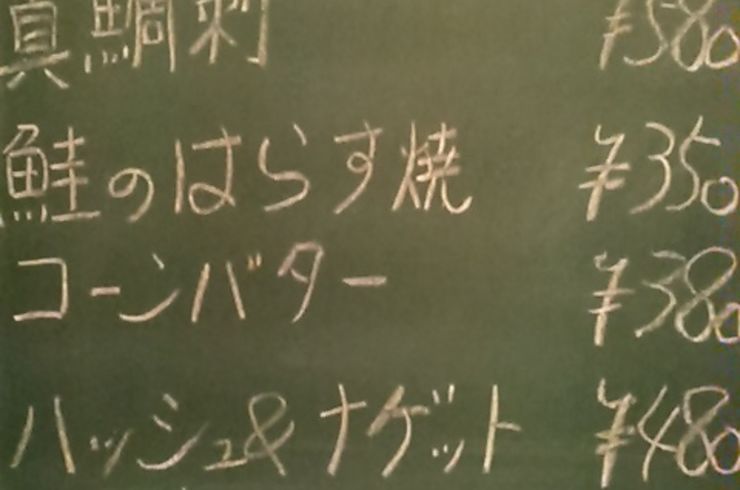 真鯛刺 ¥580
鮭のはらす焼 ¥350
コーンバター ¥380
ハッシュ&ナゲット ¥480